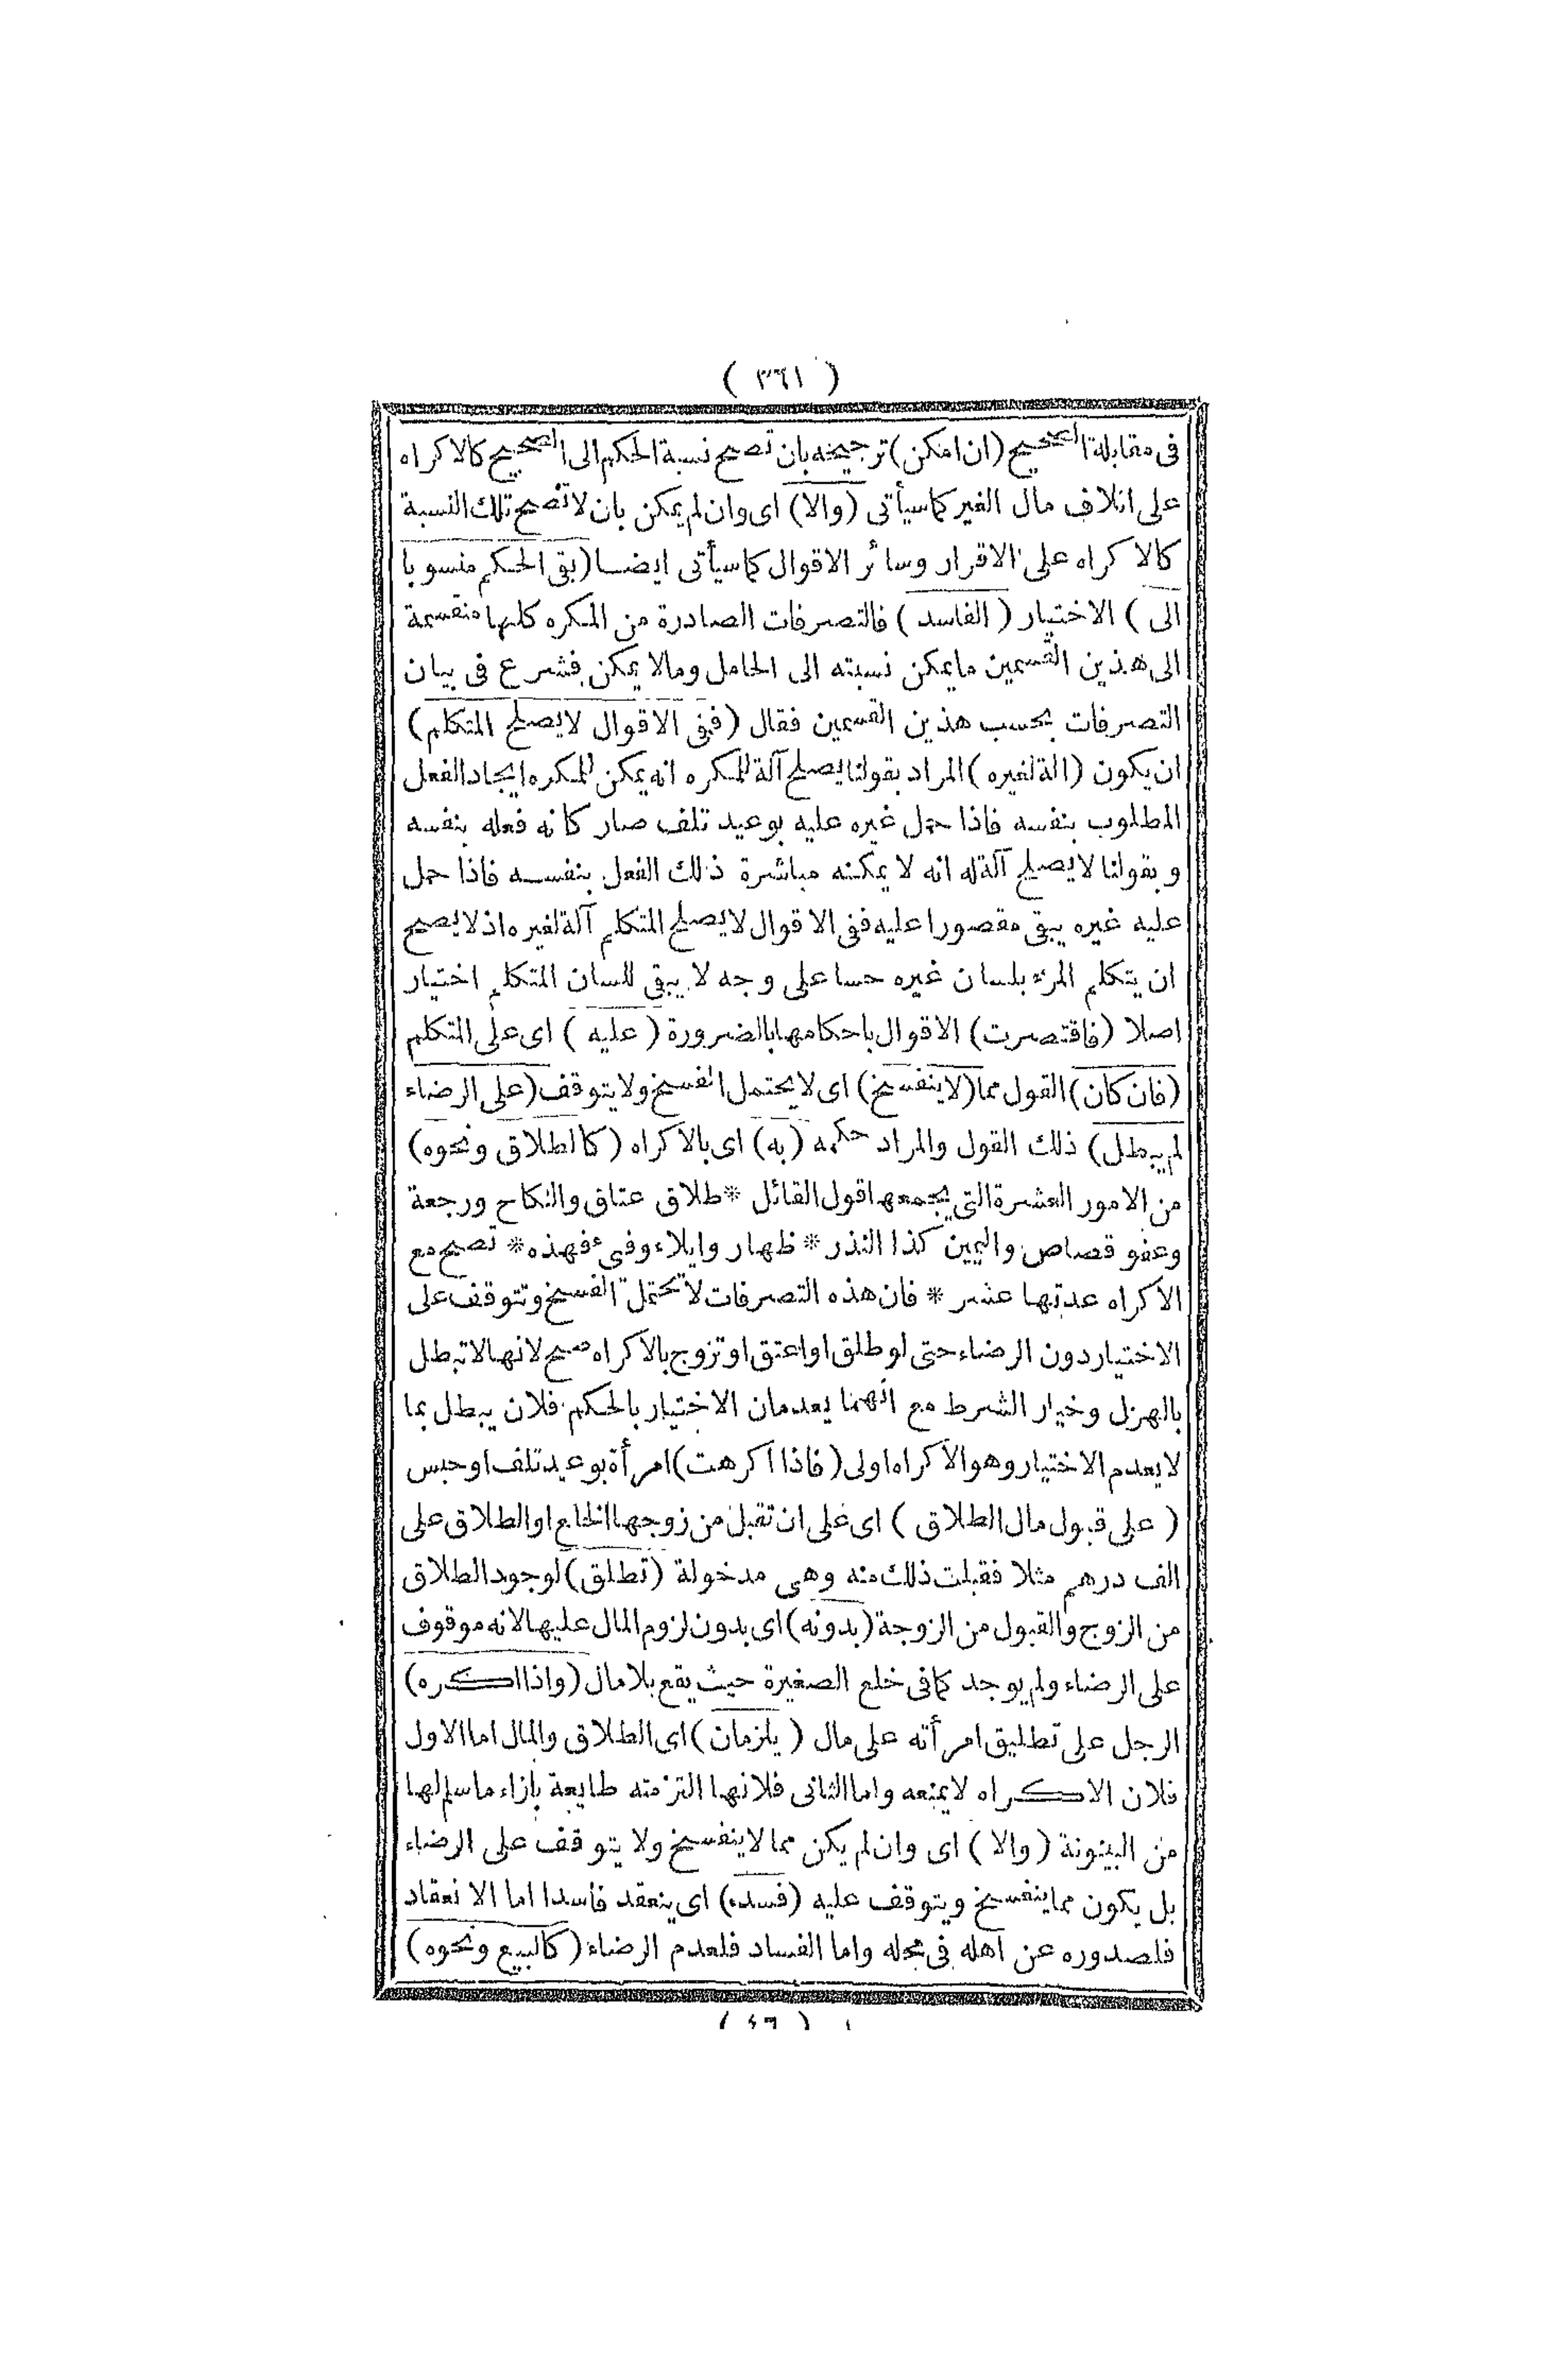 ( ٣٦١ )
فى مقابلة الصحيح (ان امكن) ترجيحه بان تصح نسبة الحكم الى الصحيح كالاكراه
على اتلاف مال الغير كما سيأتى (والا) اى وان لم يمكن بان لا تصح تلك النسبة
كالاكراه على الاقرار وسائر الاقوال كما سيأتى ايضا (بقى الحكم منسوبا
الى ) الاختيار ( الفاسد ) فالتصرفات الصادرة من المكره كلها منقسمة
الى هذين القسمين ما يمكن نسبته الى الحامل وما لا يمكن فشرع فى بيان
التصرفات بحسب هذين القسمين فقال (ففى الاقوال لا يصلح المتكلم)
ان يكون (آلة لغيره) المراد بقولنا يصلح آلة للمكره انه يمكن للمكره ايجاد الفعل
المطلوب بنفسه فاذا حمل غيره عليه بوعيد تلف صار كانه فعله بنفسه
وبقولنا لا يصلح آلة له انه لا يمكنه مباشرة ذلك الفعل بنفسه فاذا حمل
عليه غيره يبقى مقصورا عليه ففى الاقوال لا يصلح المتكلم آلة لغيره اذ لا يصح
ان يتكلم المرء بلسان غيره حسا على وجه لا يبقى للسان المتكلم اختيار
اصلا (فاقتصرت) الاقوال باحكامها بالضرورة ( عليه ) اى على المتكلم
(فان كان) القول مما (لا ينفسخ) اى لا يحتمل الفسخ ولا يتوقف (على الرضاء
لم يبطل) ذلك القول والمراد حكمه (به) اى بالاكراه (كالطلاق ونحوه)
من الامور العشرة التى يجمعها قول القائل * طلاق عتاق والنكاح ورجعة
وعفو قصاص واليمين كذا النذر * ظهار وايلاء وفىء فهذه * تصح مع
الاكراه عدتها عشر * فان هذه التصرفات لا تحتمل الفسخ وتتوقف على
الاختيار دون الرضاء حتى لو طلق او اعتق او تزوج بالاكراه صح لانها لا تبطل
بالهزل وخيار الشرط مع انهما يعدمان الاختيار بالحكم فلان يبطل بما
لا يعدم الاختيار وهو الاكراه اولى (فاذا اكرهت) امرأة بوعيد تلف او حبس
( على قبول مال الطلاق ) اى على ان تقبل من زوجها الخلع او الطلاق على
الف درهم مثلا فقبلت ذلك منه وهى مدخولة (تطلق) لوجود الطلاق
من الزوج والقبول من الزوجة (بدونه) اى بدون لزوم المال عليها لانه موقوف
على الرضاء ولم يوجد كما فى خلع الصغيرة حيث يقع بلا مال (واذا اكره)
الرجل على تطليق امرأته على مال ( يلزمان ) اى الطلاق والمال اما الاول
فلان الاكراه لا يمنعه واما الثانى فلانها التزمته طايعة بازاء ما سلم لها
من البينونة (والا ) اى وان لم يكن مما لا ينفسخ ولا يتوقف على الرضاء
بل يكون مما ينفسخ ويتوقف عليه (فسد) اى ينعقد فاسدا اما الانعقاد
فلصدوره عن اهله فى محله واما الفساد فلعدم الرضاء (كالبيع ونحوه)
( ٤٦ )